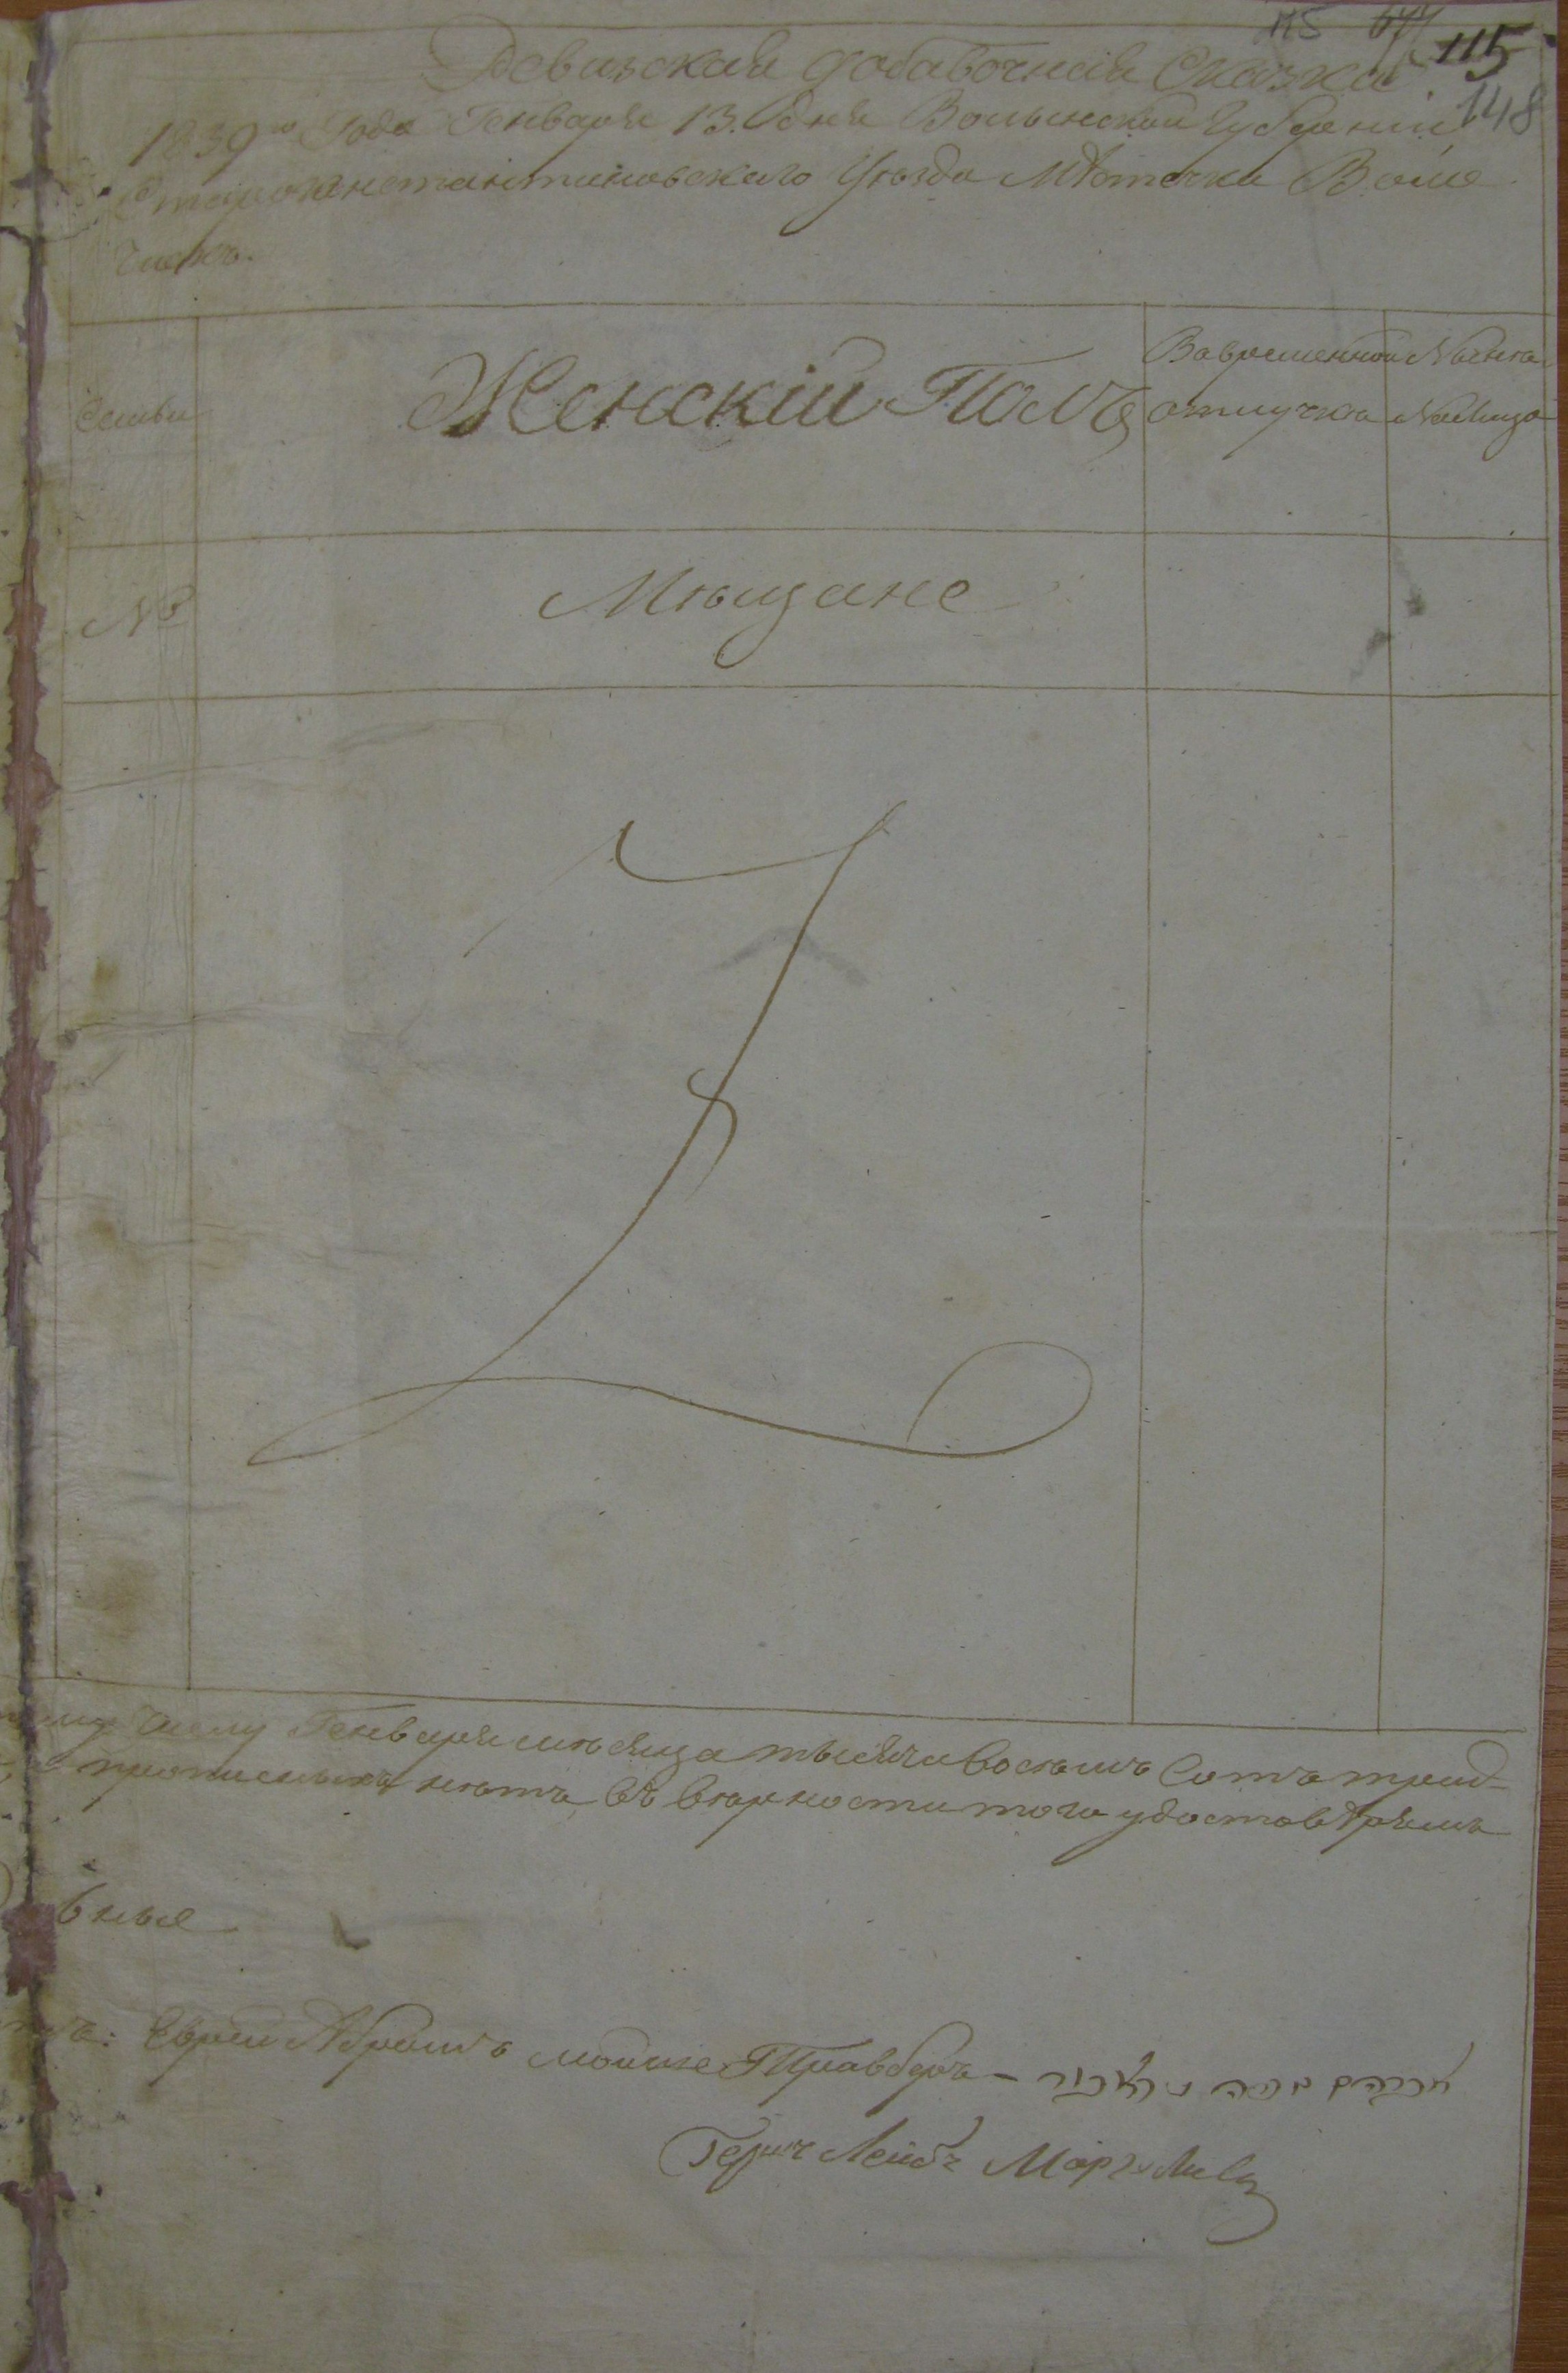 115 115
148
Ревизская добавочная Сказка
1839го Года Генваря 13. дня Волынской Губерніи
Староконстантиновского Уезда Мѣстечка Воло
чискъ.
Семьи
Женскій Полъ
Вовременной
отлучкѣ
Налицо
№
Мѣщане
числу Генваря мѣсяца тысяча восемъ Сотъ трид-
прописныхъ нѣтъ, въ верности того удостовѣряемъ
Еврей Абрамъ Мошко -
אברהם משה
Герш Лейб Маргулис